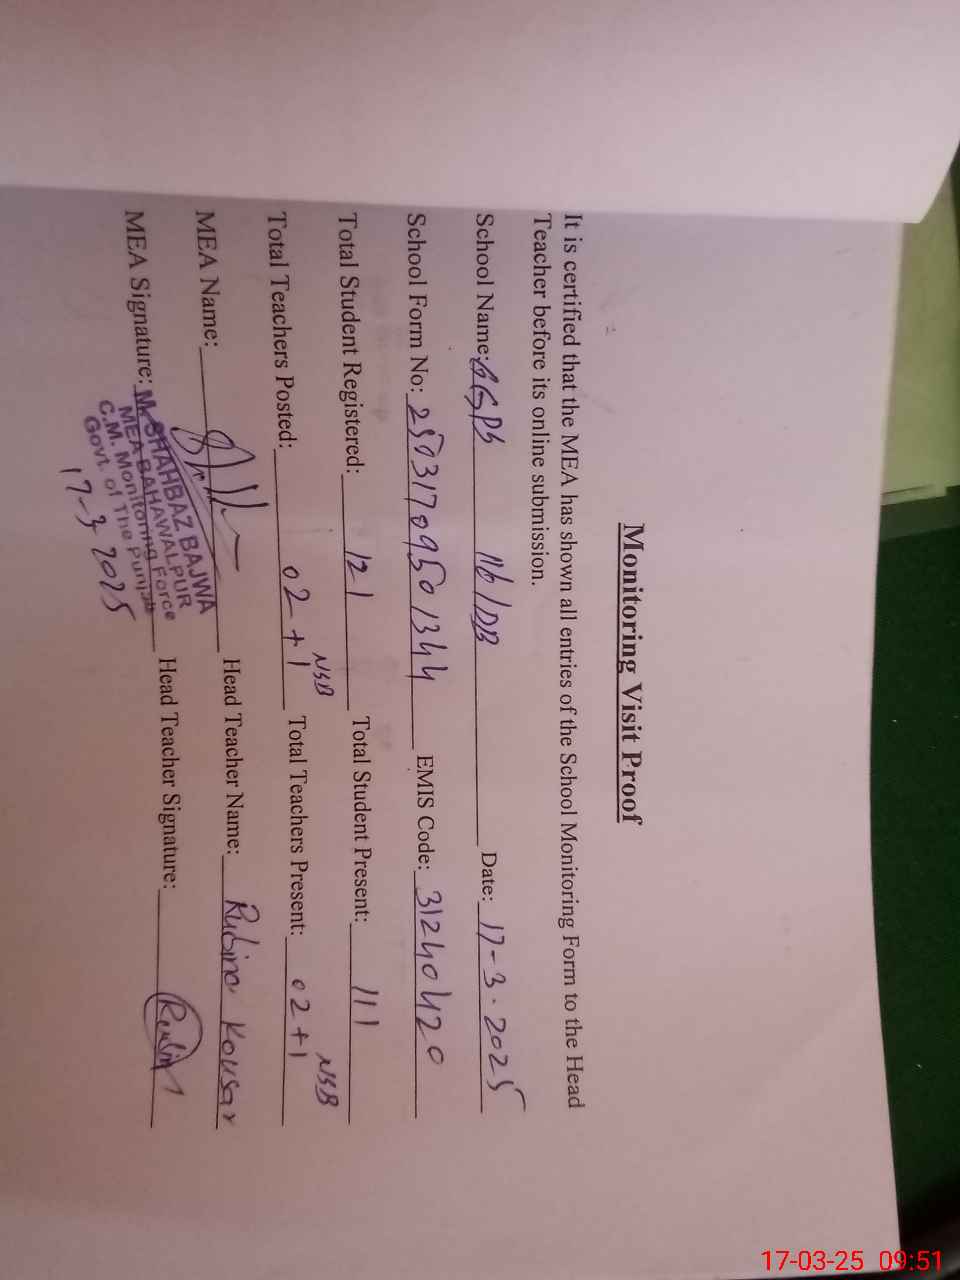 Monitoring Visit Proof
It is certified that the MEA has shown all entries of the School Monitoring Form to the Head
Teacher before its online submission.
School Name: GGPS 116/DB Date: 17-3.2025
School Form No: 25031709501344 EMIS Code: 31240420
Total Student Registered: 121 Total Student Present: 111
NSB NSB
Total Teachers Posted: 02+1 Total Teachers Present: 02+1
MEA Name: Head Teacher Name: Rubina Kousar
MEA Signature: M. SHAHBAZ BAJWA Head Teacher Signature: Rubina
MEA BAHAWALPUR
C.M. Monitoring Force
Govt. of The Punjab
17-3-2025
17-03-25 09:51